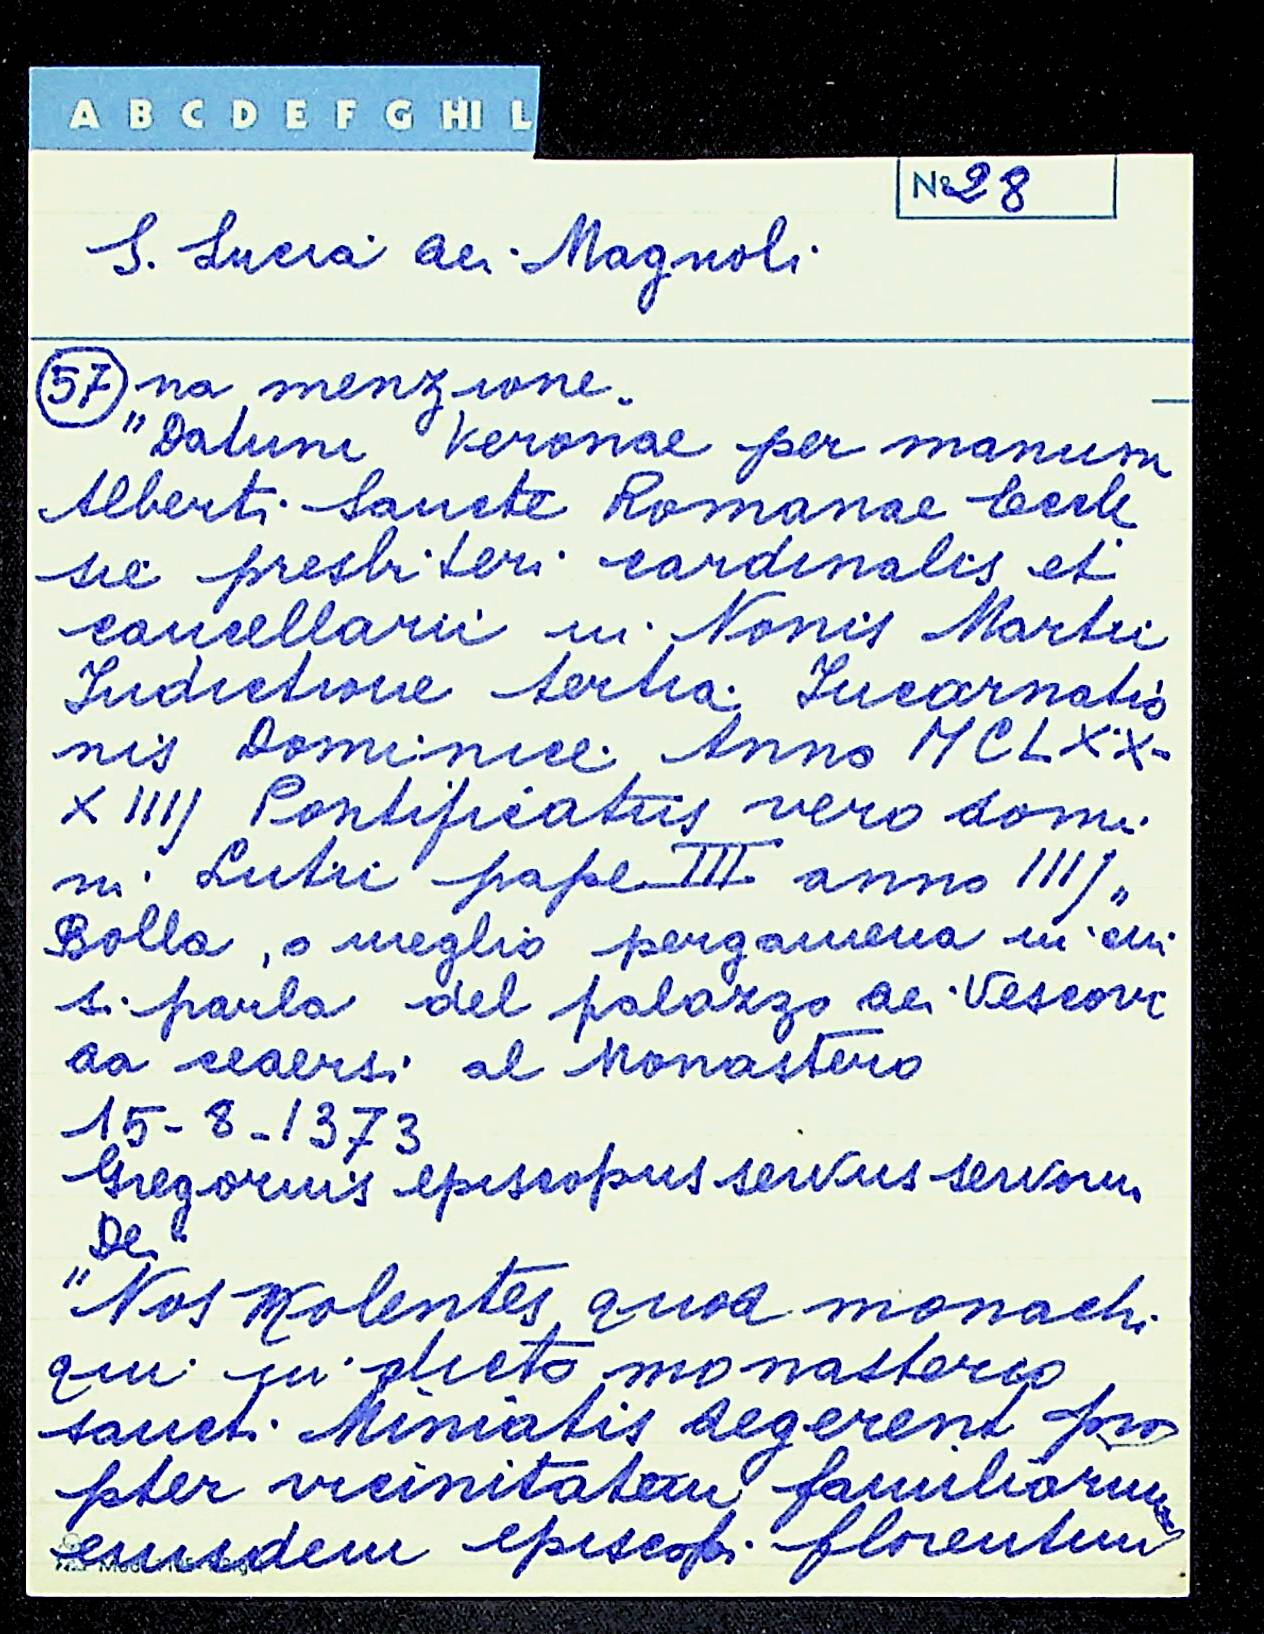 A B C D E F G HI L
№ 28
S. Lucia dei Magnoli
57 na menzione.
"Datum Veronae per manum
Alberti Sancte Romanae Eccle
sie presbiteri cardinalis et
cancellarii in Nonis Martii
Indictione tertia Incarnatio
nis Dominice Anno MCLXX-
XIIIJ Pontificatus vero domi
ni Lutii pape III anno IIIJ"
Bolla, o meglio pergamena in cui
si parla del palazzo dei Vescovi
da cedersi al Monastero
15-8-1373
Gregorius episcopus servus servorum
Dei"
"Nos Volentes quod monachi
qui in dicto monasterio
sancti Miniatis degerent pro
pter vicinitatem familiarum
eiusdem episcopi florentini